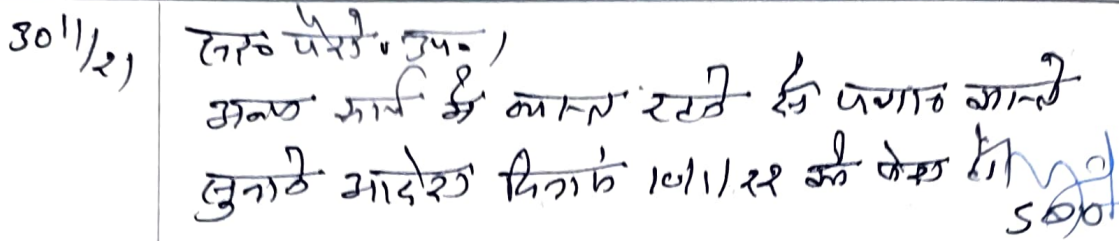 30/11/21
उभय पैरो. उप. ।
अन्य कार्य में व्यस्त रहने से पत्रावली वास्ते
सुनाने आदेश दिनांक 10/1/22 को पेश हो।
SDO